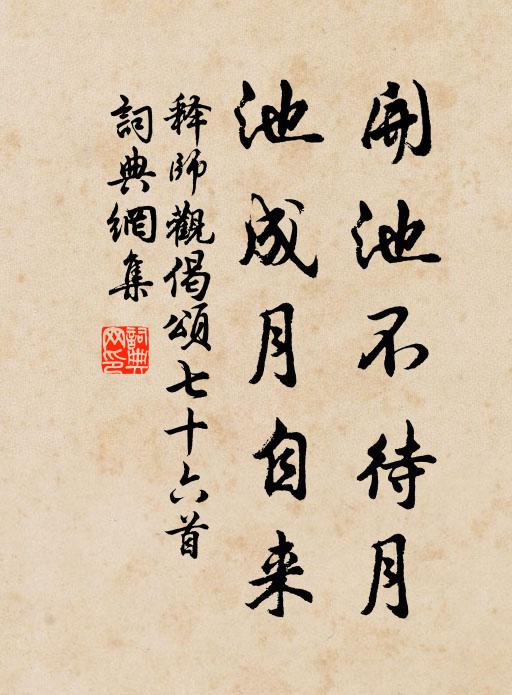 開池不待月
池成月自来
释師觀偈頌七十六首
詞典網集
詞典網印